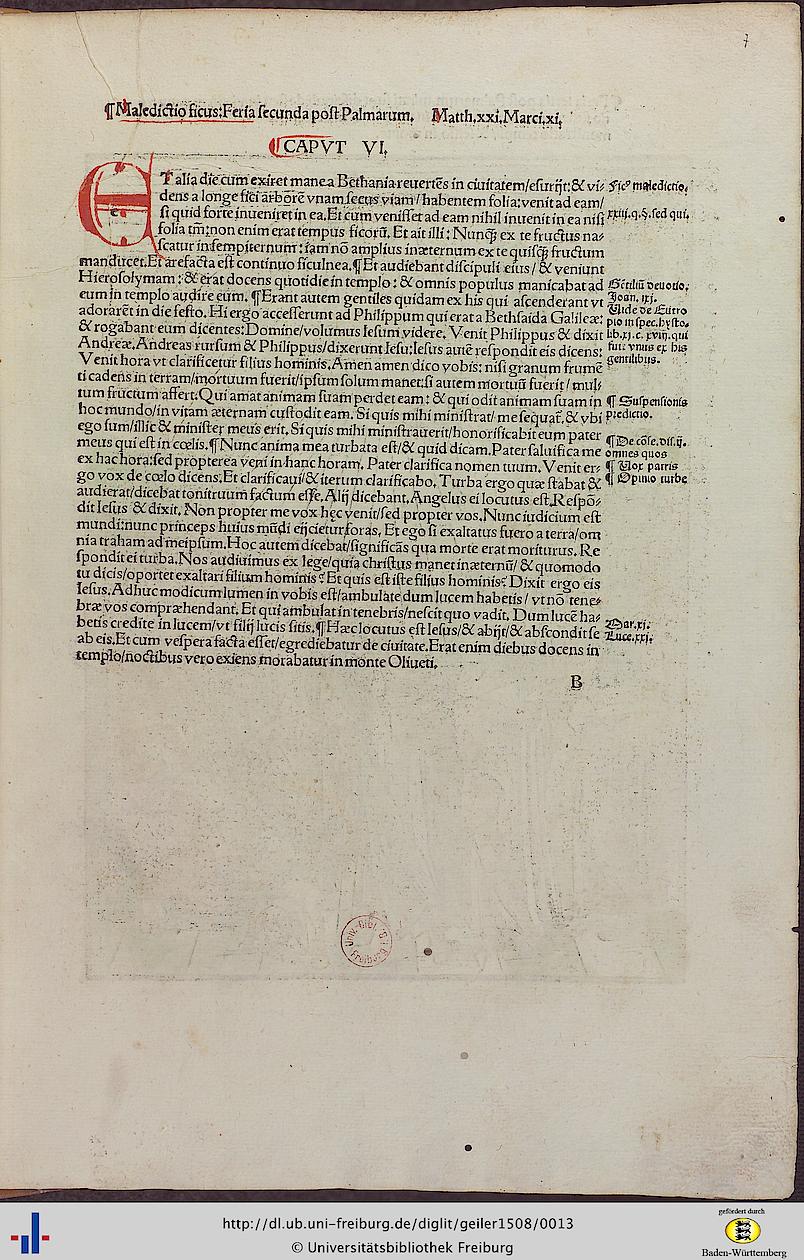 7
¶Maledictio ficus:Feria secunda post Palmarum. Matth.xxi.Marci.xi.
CAPVT VI.
ET alia die cum exiret mane a Bethania reuertēs in ciuitatem/esurijt:& vi-
dens a longe fici arborē vnam secus viam/habentem folia:venit ad eam/
si quid forte inueniret in ea.Et cum venisset ad eam nihil inuenit in ea nisi
folia tm̄:non enim erat tempus ficorū. Et ait illi: Nunq̄ ex te fructus na-
scatur in sempiternum: iam nō amplius inæternum ex te quisq̄ fructum
manducet.Et arefacta est continuo ficulnea.¶Et audiebant discipuli eius/ & veniunt
Hierosolymam:& erat docens quotidie in templo: & omnis populus manicabat ad
eum in templo audire eum. ¶Erant autem gentiles quidam ex his qui ascenderant vt
adorarēt in die festo. Hi ergo accesserunt ad Philippum qui erat a Bethsaida Galileæ:
& rogabant eum dicentes:Domine/volumus Iesum videre. Venit Philippus & dixit
Andreæ.Andreas rursum & Philippus/dixerunt Iesu:Iesus autē respondit eis dicens:
Venit hora vt clarificetur filius hominis.Amen amen dico vobis: nisi granum frumē
ti cadens in terram/mortuum fuerit/ipsum solum manet:si autem mortuū fuerit/ mul-
tum fructum affert.Qui amat animam suam perdet eam: & qui odit animam suam in
hoc mundo/in vitam æternam custodit eam. Si quis mihi ministrat/me sequat.& vbi
ego sum/illic & minister meus erit. Si quis mihi ministrauerit/honorificabit eum pater
meus qui est in cœlis.¶Nunc anima mea turbata est/& quid dicam.Pater saluifica me
ex hac hora:sed propterea veni in hanc horam. Pater clarifica nomen tuum. Venit er-
go vox de cœlo dicens.Et clarificaui/& iterum clarificabo. Turba ergo quæ stabat &
audierat/dicebat tonitruum factum esse. Alij dicebant.Angelus ei locutus est.Respō-
dit Iesus & dixit. Non propter me vox hęc venit/sed propter vos.Nunc iudicium est
mundi:nunc princeps huius mūdi eijcietur foras. Et ego si exaltatus fuero a terra/om
nia traham ad meipsum.Hoc autem dicebat/significās qua morte erat moriturus. Re
spondit ei turba.Nos audiuimus ex lege/quia christus manet inæternū/ & quomodo
tu dicis/oportet exaltari filium hominis? Et quis est iste filius hominis? Dixit ergo eis
Iesus.Adhuc modicum lumen in vobis est/ambulate dum lucem habetis/ vt nō tene-
bræ vos compræhendant. Et qui ambulat in tenebris/nescit quo vadit. Dum lucē ha-
betis credite in lucem/vt filij lucis sitis.¶Hæc locutus est Iesus/& abijt/& abscondit se
ab eis.Et cum vespera facta esset/egrediebatur de ciuitate.Erat enim diebus docens in
templo/noctibus vero exiens morabatur in monte Oliueti.
B
maledictio.
xxiij.q.§.sed qui.
Gētiliū deuotio.
Joan. xij.
Vide de Eutro
pio in spec.hysto.
lib.xj.c. xviij.qui
fuit vnus ex his
gentilibus.
¶ Suspensionis
predictio.
¶De cōse.dis.ij.
omnes quos
¶ Vox patris
¶ Opinio turbe
Mar.xj.
Luce.xxj.
Univ.-Bibl.
Freiburg
http://dl.ub.uni-freiburg.de/diglit/geiler1508/0013
© Universitätsbibliothek Freiburg
gefördert durch
Baden-Württemberg